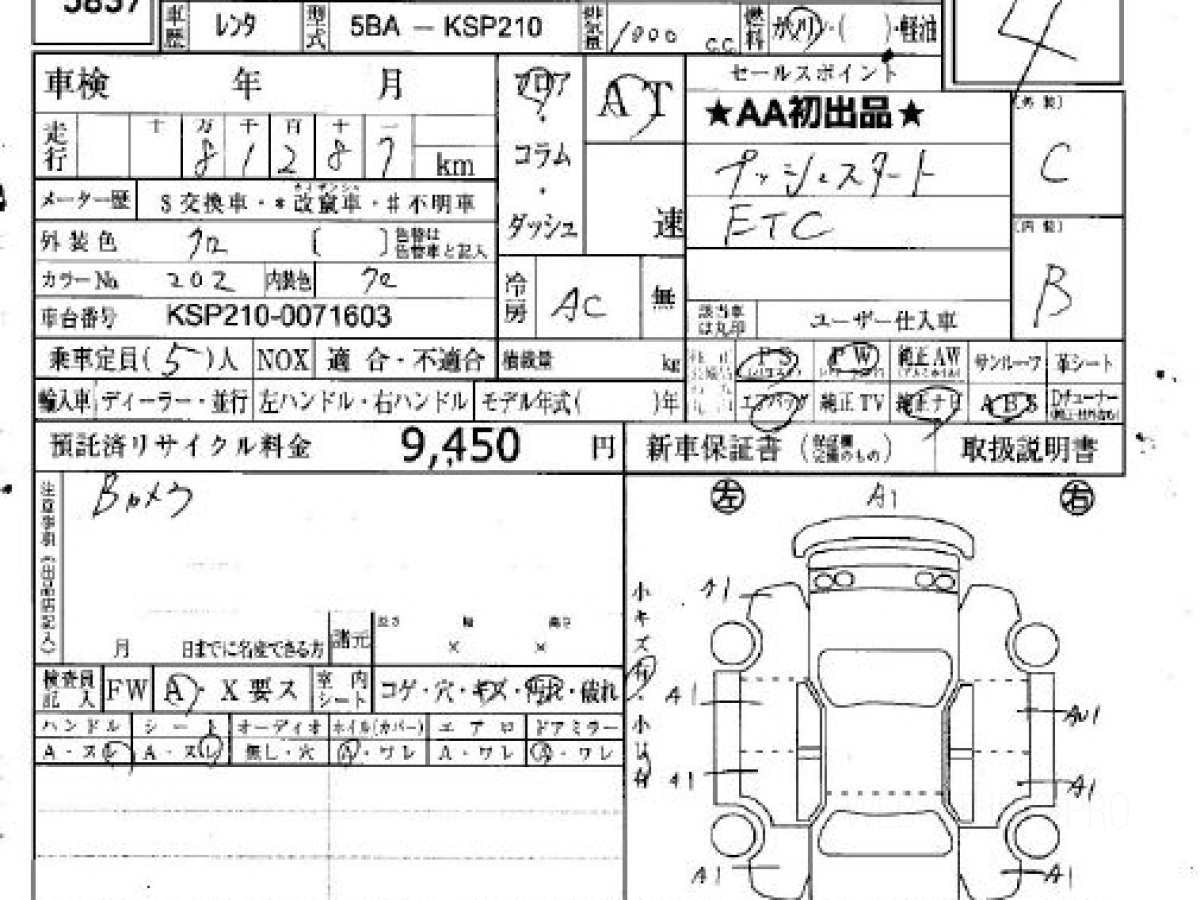 5837
車歴 レンタ 型式 5BA － KSP210 排気量 1000 C.C. 燃料 ガソリン・( )・軽油
4
車検 年 月
フロア
・
コラム
・
ダッシュ
AT
速
セールスポイント
★AA初出品★
プッシュスタート
ETC
(外装)
C
(内装)
B
走行 十 万 千 百 十 一
8 1 2 8 7 km
メーター歴 $交換車・*改竄車・#不明車
外装色 クロ [ ] 色替は色替車と記入
カラーNo. 202 内装色 クロ
車台番号 KSP210-0071603
冷房 AC 無
該当車は丸印 ユーザー仕入車
乗車定員( 5 )人 NOX 適合・不適合 積載量 kg
PS PW 純正AW サンルーフ 革シート
輸入車 ディーラー・並行 左ハンドル・右ハンドル モデル年式( )年
エアバッグ 純正TV 純正ナビ ABS Dチューナー
預託済リサイクル料金 9,450 円 新車保証書 取扱説明書
注意事項(出品店記入)
Bカメラ
月 日までに名変できる方 諸元 長さ 幅 高さ
× ×
検査員記入 FW A・X要ス 室内シート コゲ・穴・キズ・汚れ・破れ
ハンドル シート オーディオ ホイル(カバー) エアロ ドアミラー
A・スレ A・スレ 無し・穴 A・ワレ A・ワレ A・ワレ
左 A1 右
小キズ有・小凹有
A1
A1 AU1
A1 A1
A1 A1